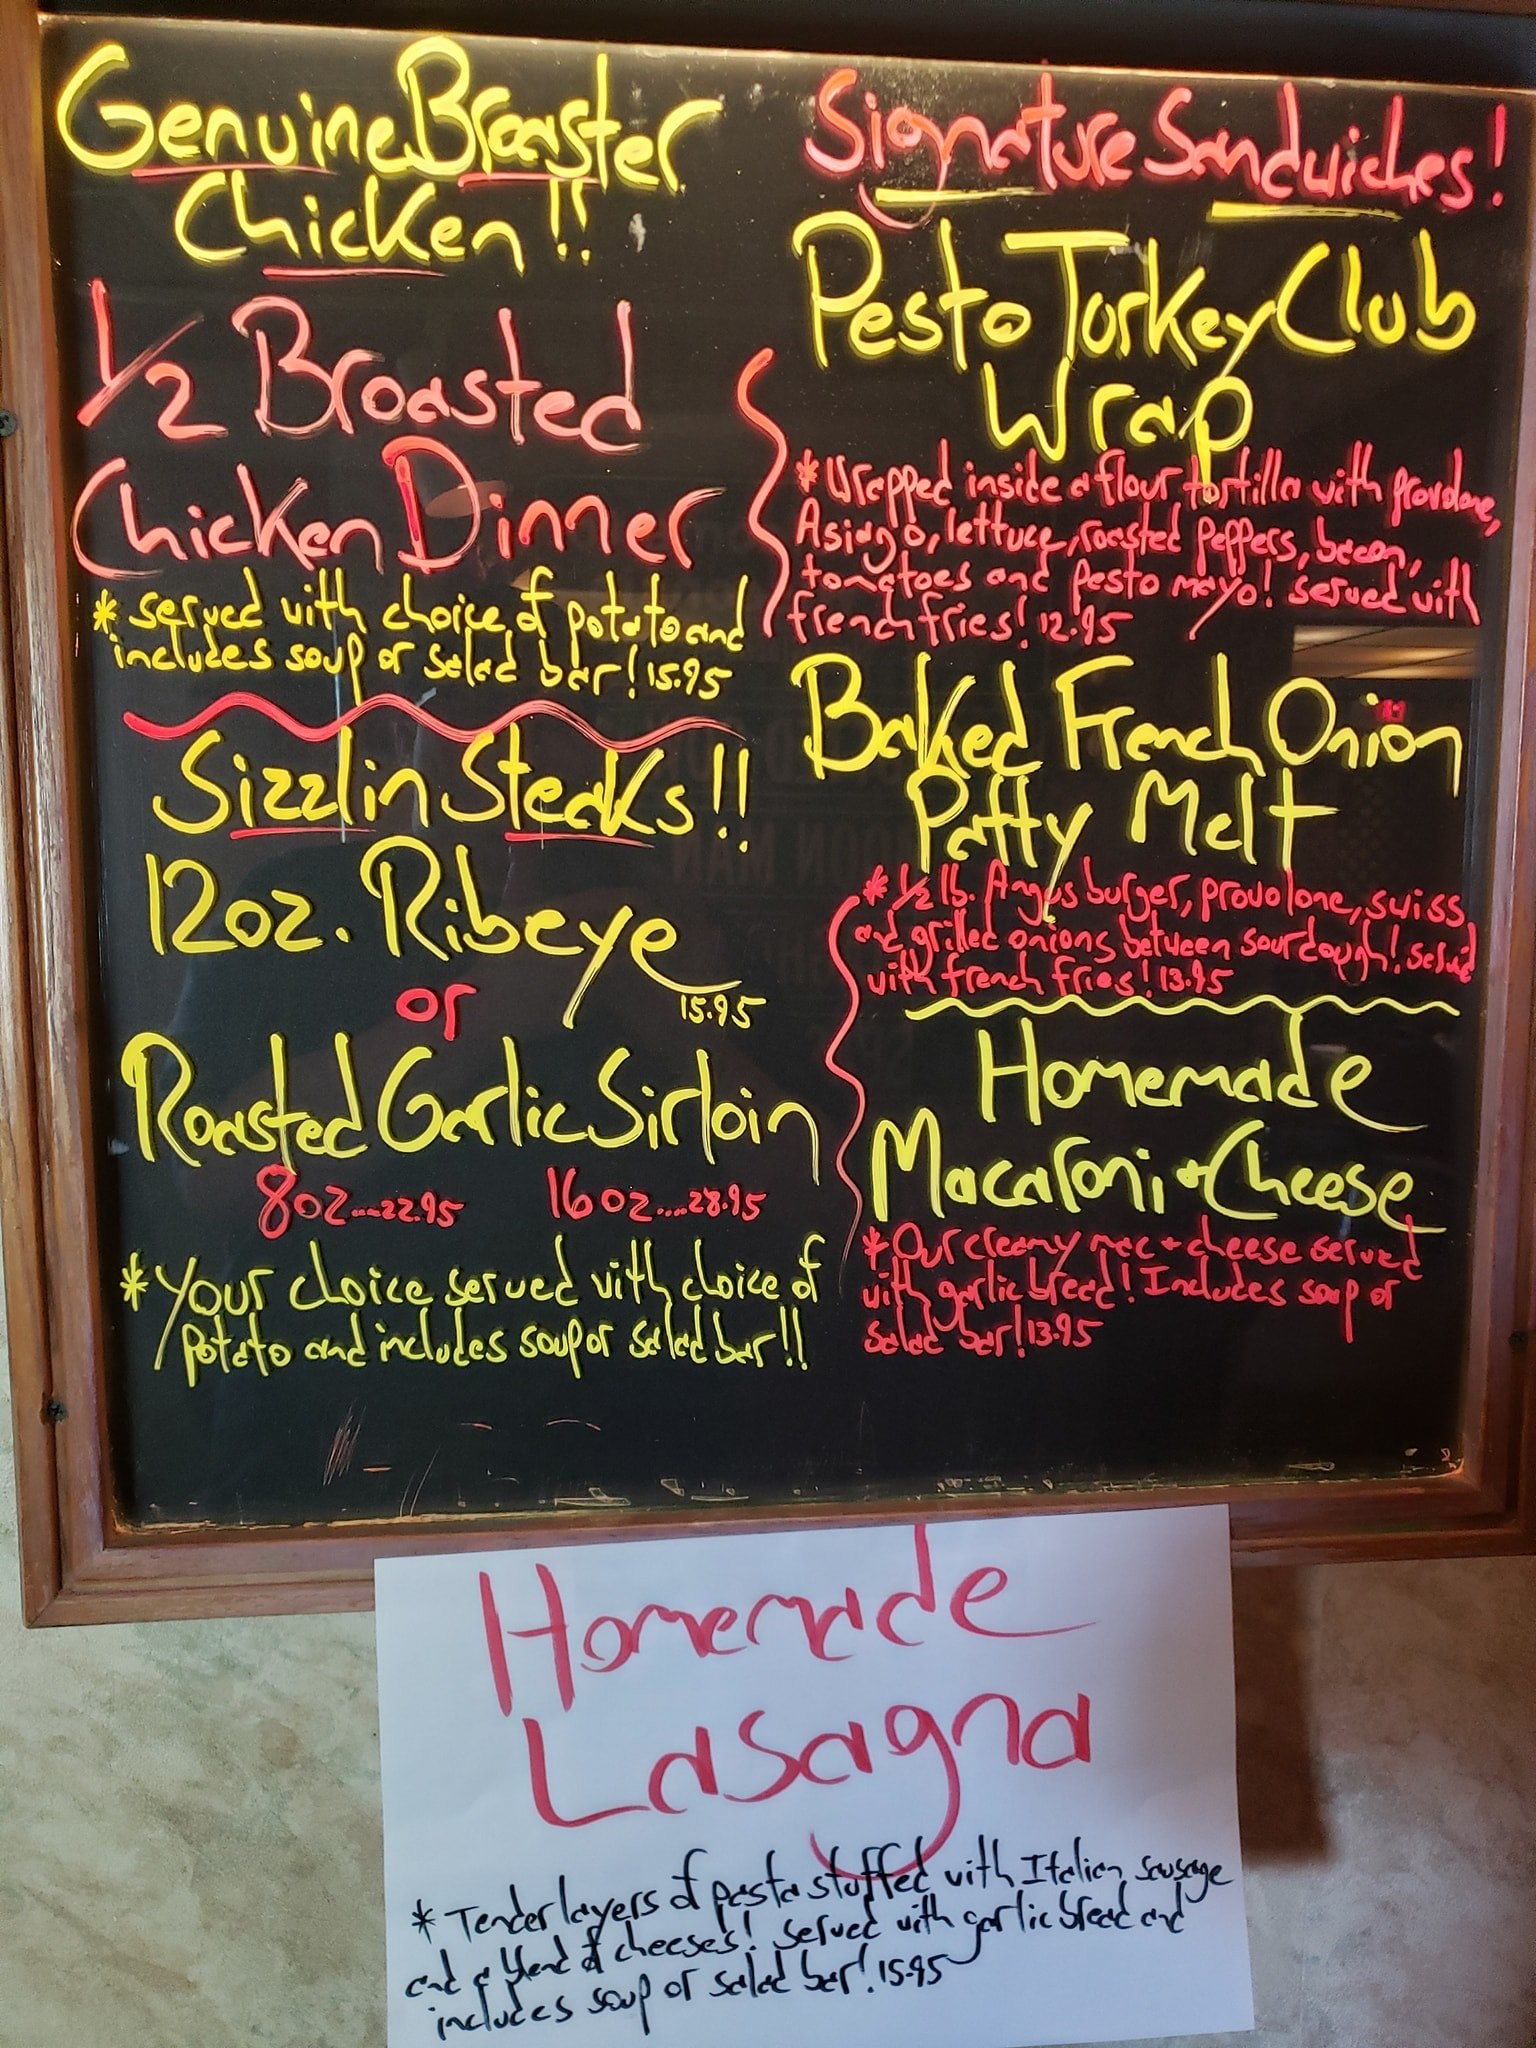 Genuine Broaster
Chicken!!
1/2 Broasted
Chicken Dinner
* served with choice of potato and
includes soup or salad bar! 15.95
Sizzlin Steaks!!
12oz. Ribeye
15.95
or
Roasted Garlic Sirloin
8oz....22.95 16oz....28.95
* Your choice served with choice of
potato and includes soup or salad bar!!
Signature Sandwiches!
Pesto Turkey Club
Wrap
* Wrapped inside a flour tortilla with provolone,
Asiago, lettuce, roasted peppers, bacon,
tomatoes and pesto mayo! served with
french fries! 12.95
Baked French Onion
Patty Melt
* 1/2 lb. Angus burger, provolone, swiss,
and grilled onions between sourdough! served
with french fries! 13.95
Homemade
Macaroni + Cheese
* Our creamy mac + cheese served
with garlic bread! Includes soup or
salad bar! 13.95
Homemade
Lasagna
* Tender layers of pasta stuffed with Italian sausage
and a blend of cheeses! served with garlic bread and
includes soup or salad bar! 15.95